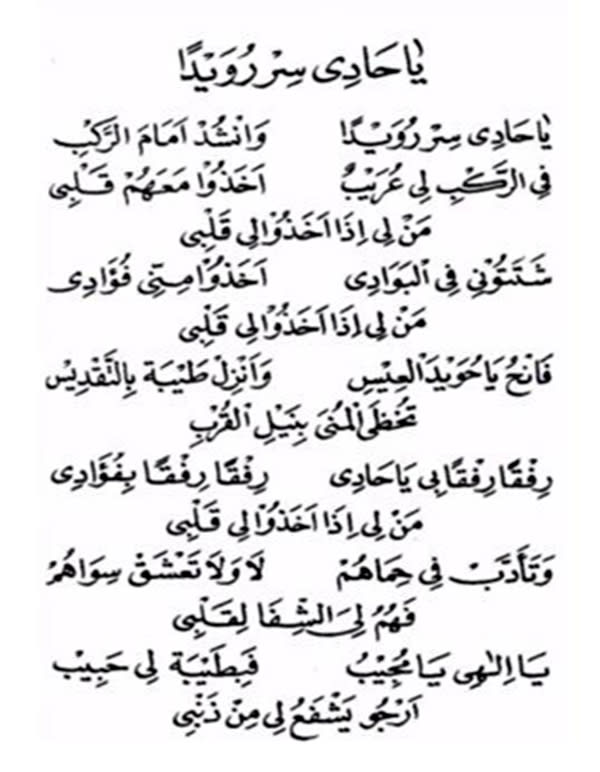 يَا حَادِى سِرْ رُوَيْدًا
يَا حَادِى سِرْ رُوَيْدًا وَانْشُدْ اَمَامَ الرَّكْبِ
فِي الرَّكْبِ لِي عُرَيْبٌ اَخَذُوْا مَعَهُمْ قَلْبِى
مَنْ لِى اِذَا اَخَذُوْا لِى قَلْبِى
شَتَتُوْنِي فِي الْبَوَادِى اَخَذُوْا مِنِّى فُؤَادِى
مَنْ لِى اِذَا اَخَذُوْا لِى قَلْبِى
فَانْحُ يَا حُوَيْدَ الْعِيْسِ وَانْزِلْ طَيْبَة بِالتَّقْدِيْسِ
تُحْظَى الْمُنَى بِنَيْلِ الْقُرْبِ
رِفْقًا رِفْقًا بِى يَا حَادِى رِفْقًا رِفْقًا بِفُؤَادِى
مَنْ لِى اِذَا اَخَذُوْا لِى قَلْبِى
وَتَأَدَّبْ فِي حِمَاهُمْ لَا وَلَا تَعْشَقْ سِوَاهُمْ
فَهُمْ لِىَ الشِّفَا لِقَلْبِى
يَا اِلٰهِى يَا مُجِيْبُ فَبِطَيْبَة لِى حَبِيْب
اَرْجُو يَشْفَعُ لِى مِنْ ذَنْبِى